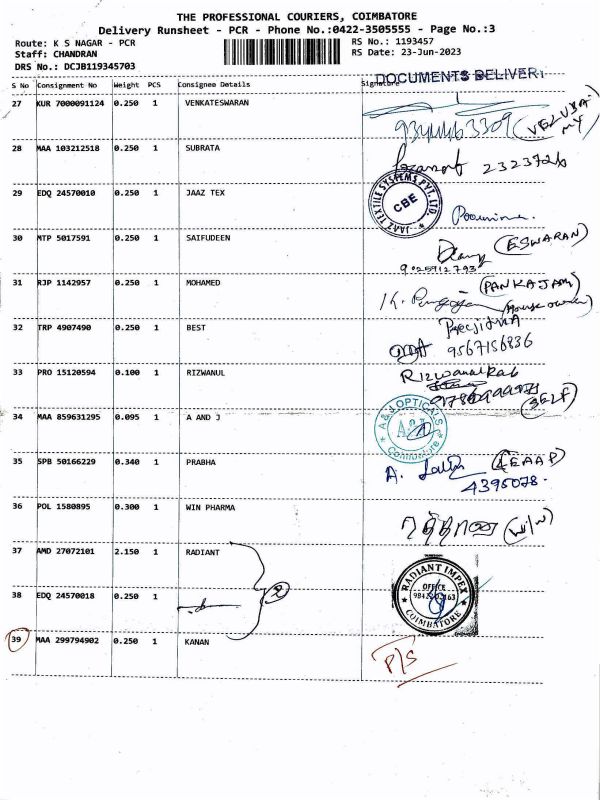 THE PROFESSIONAL COURIERS, COIMBATORE
Delivery Runsheet - PCR - Phone No.:0422-3505555 - Page No.:3
Route: K S NAGAR - PCR
RS No.: 1193457
Staff: CHANDRAN
RS Date: 23-Jun-2023
DRS No.: DCJB119345703
DOCUMENTS DELIVERY
S No Consignment No Weight PCS Consignee Details Signature
27 KUR 7000091124 0.250 1 VENKATESWARAN
28 MAA 103212518 0.250 1 SUBRATA
2323726
29 EDQ 24570010 0.250 1 JAAZ TEX
JAAZ TEXTILE SYSTEMS PVT. LTD.
CBE
Poornima
30 MTP 5017591 0.250 1 SAIFUDEEN
(ESWARAN)
31 RJP 1142957 0.250 1 MOHAMED
(PANKAJAM)
(House owner)
32 TRP 4907490 0.250 1 BEST
9567156836
33 PRO 15120594 0.100 1 RIZWANUL
Rizwanulkab
(SELF)
34 MAA 859631295 0.095 1 A AND J
A & J OPTICALS
A&J
Coimbatore
35 SPB 50166229 0.340 1 PRABHA
A.
4395078.
36 POL 1580895 0.300 1 WIN PHARMA
(W/W)
37 AMD 27072101 2.150 1 RADIANT
2
RADIANT IMPEX
OFFICE
COIMBATORE
38 EDQ 24570018 0.250 1
39 MAA 299794902 0.250 1 KANAN
P/S